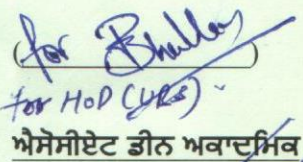 (for Bhullar)
for HOD (URS)
ਐਸੋਸੀਏਟ ਡੀਨ ਅਕਾਦਮਿਕ